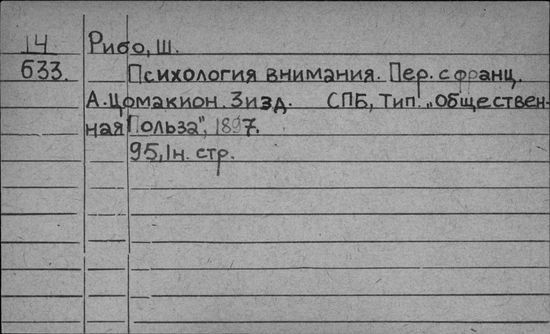 14 Рибо, Ш.
633. Психология внимания. Пер. с франц.
А. Цомакион. 3изд. СПБ, Тип. „Обществен-
ная Польза", 1897.
95, 1н. стр.